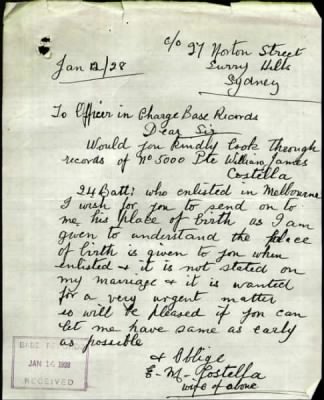 c/o 97 Norton Street
Surry Hills
Sydney
Jan 12/28
To Officer in Charge Base Records
Dear Sir
Would you kindly look through
records of No 5000 Pte William James
Costella
24 Batt; who enlisted in Melbourne
I wish for you to send on to
me his place of birth as I am
given to understand the place
of birth is given to you when
enlisted & it is not stated on
my marriage & it is wanted
for a very urgent matter
so will be pleased if you can
let me have same as early
as possible
& Oblige
E. M. Costella
wife of above
BASE RECORDS
JAN 16 1928
RECEIVED